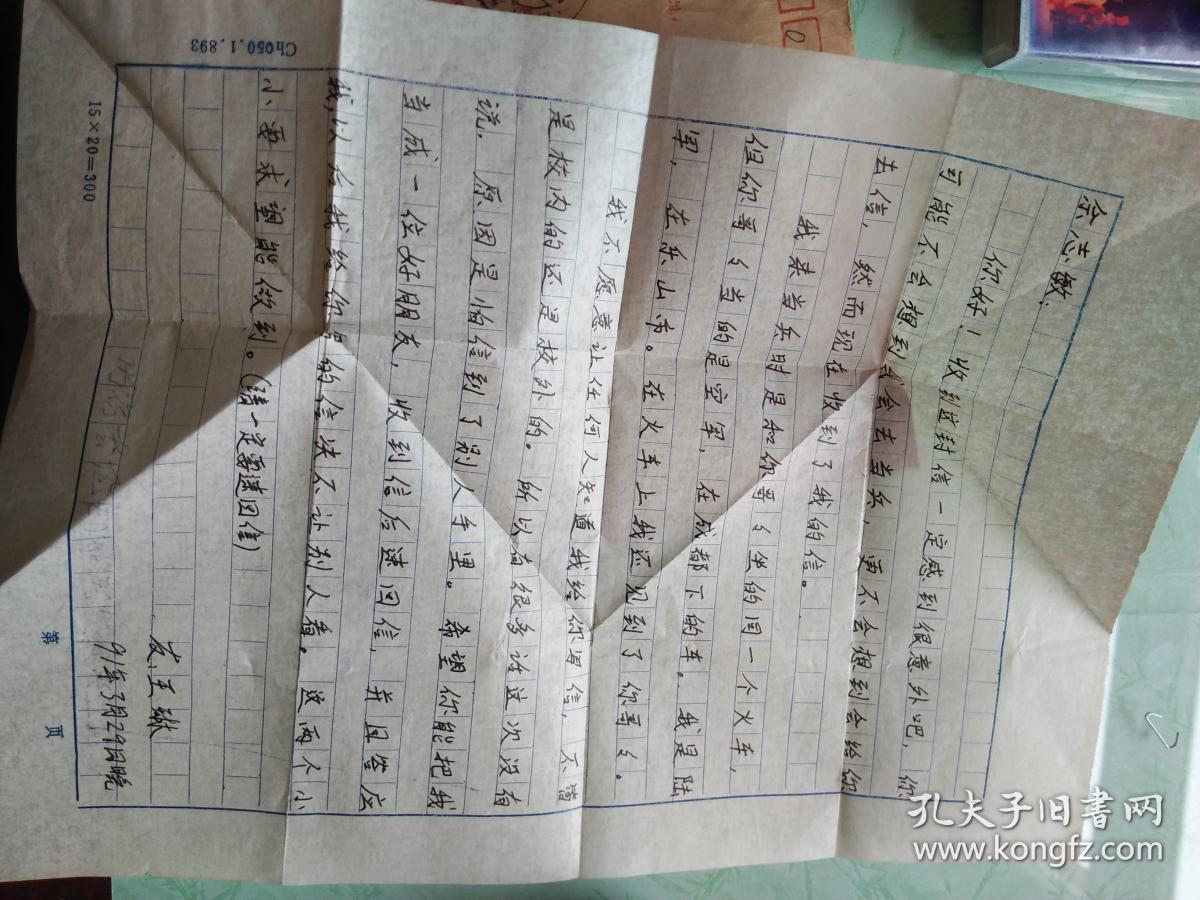 余志敏:
你好!收到这封信一定感到很意外吧,你
可能不会想到我会去当兵,更不会想到会给你
去信,然而现在收到了我的信。
我来当兵时是和你哥々坐的同一个火车,
但你哥々当的是空军,在成都下的车。我是陆
军,在乐山市。在火车上我还见到了你哥々。
我不愿意让任何人知道我给你写信,不管
是校内的还是校外的。所以有很多话这次没有
说,原因是怕信到了别人手里。希望你能把我
当成一位好朋友,收到信后速回信,并且答应
我,以后我给你写的信决不让别人看。这两个小
小要求望能做到。(请一定要速回信)
友:王琳
91年3月29日晚
15×20=300
第 页
Ch050.1.893
孔夫子旧书网
www.kongfz.com